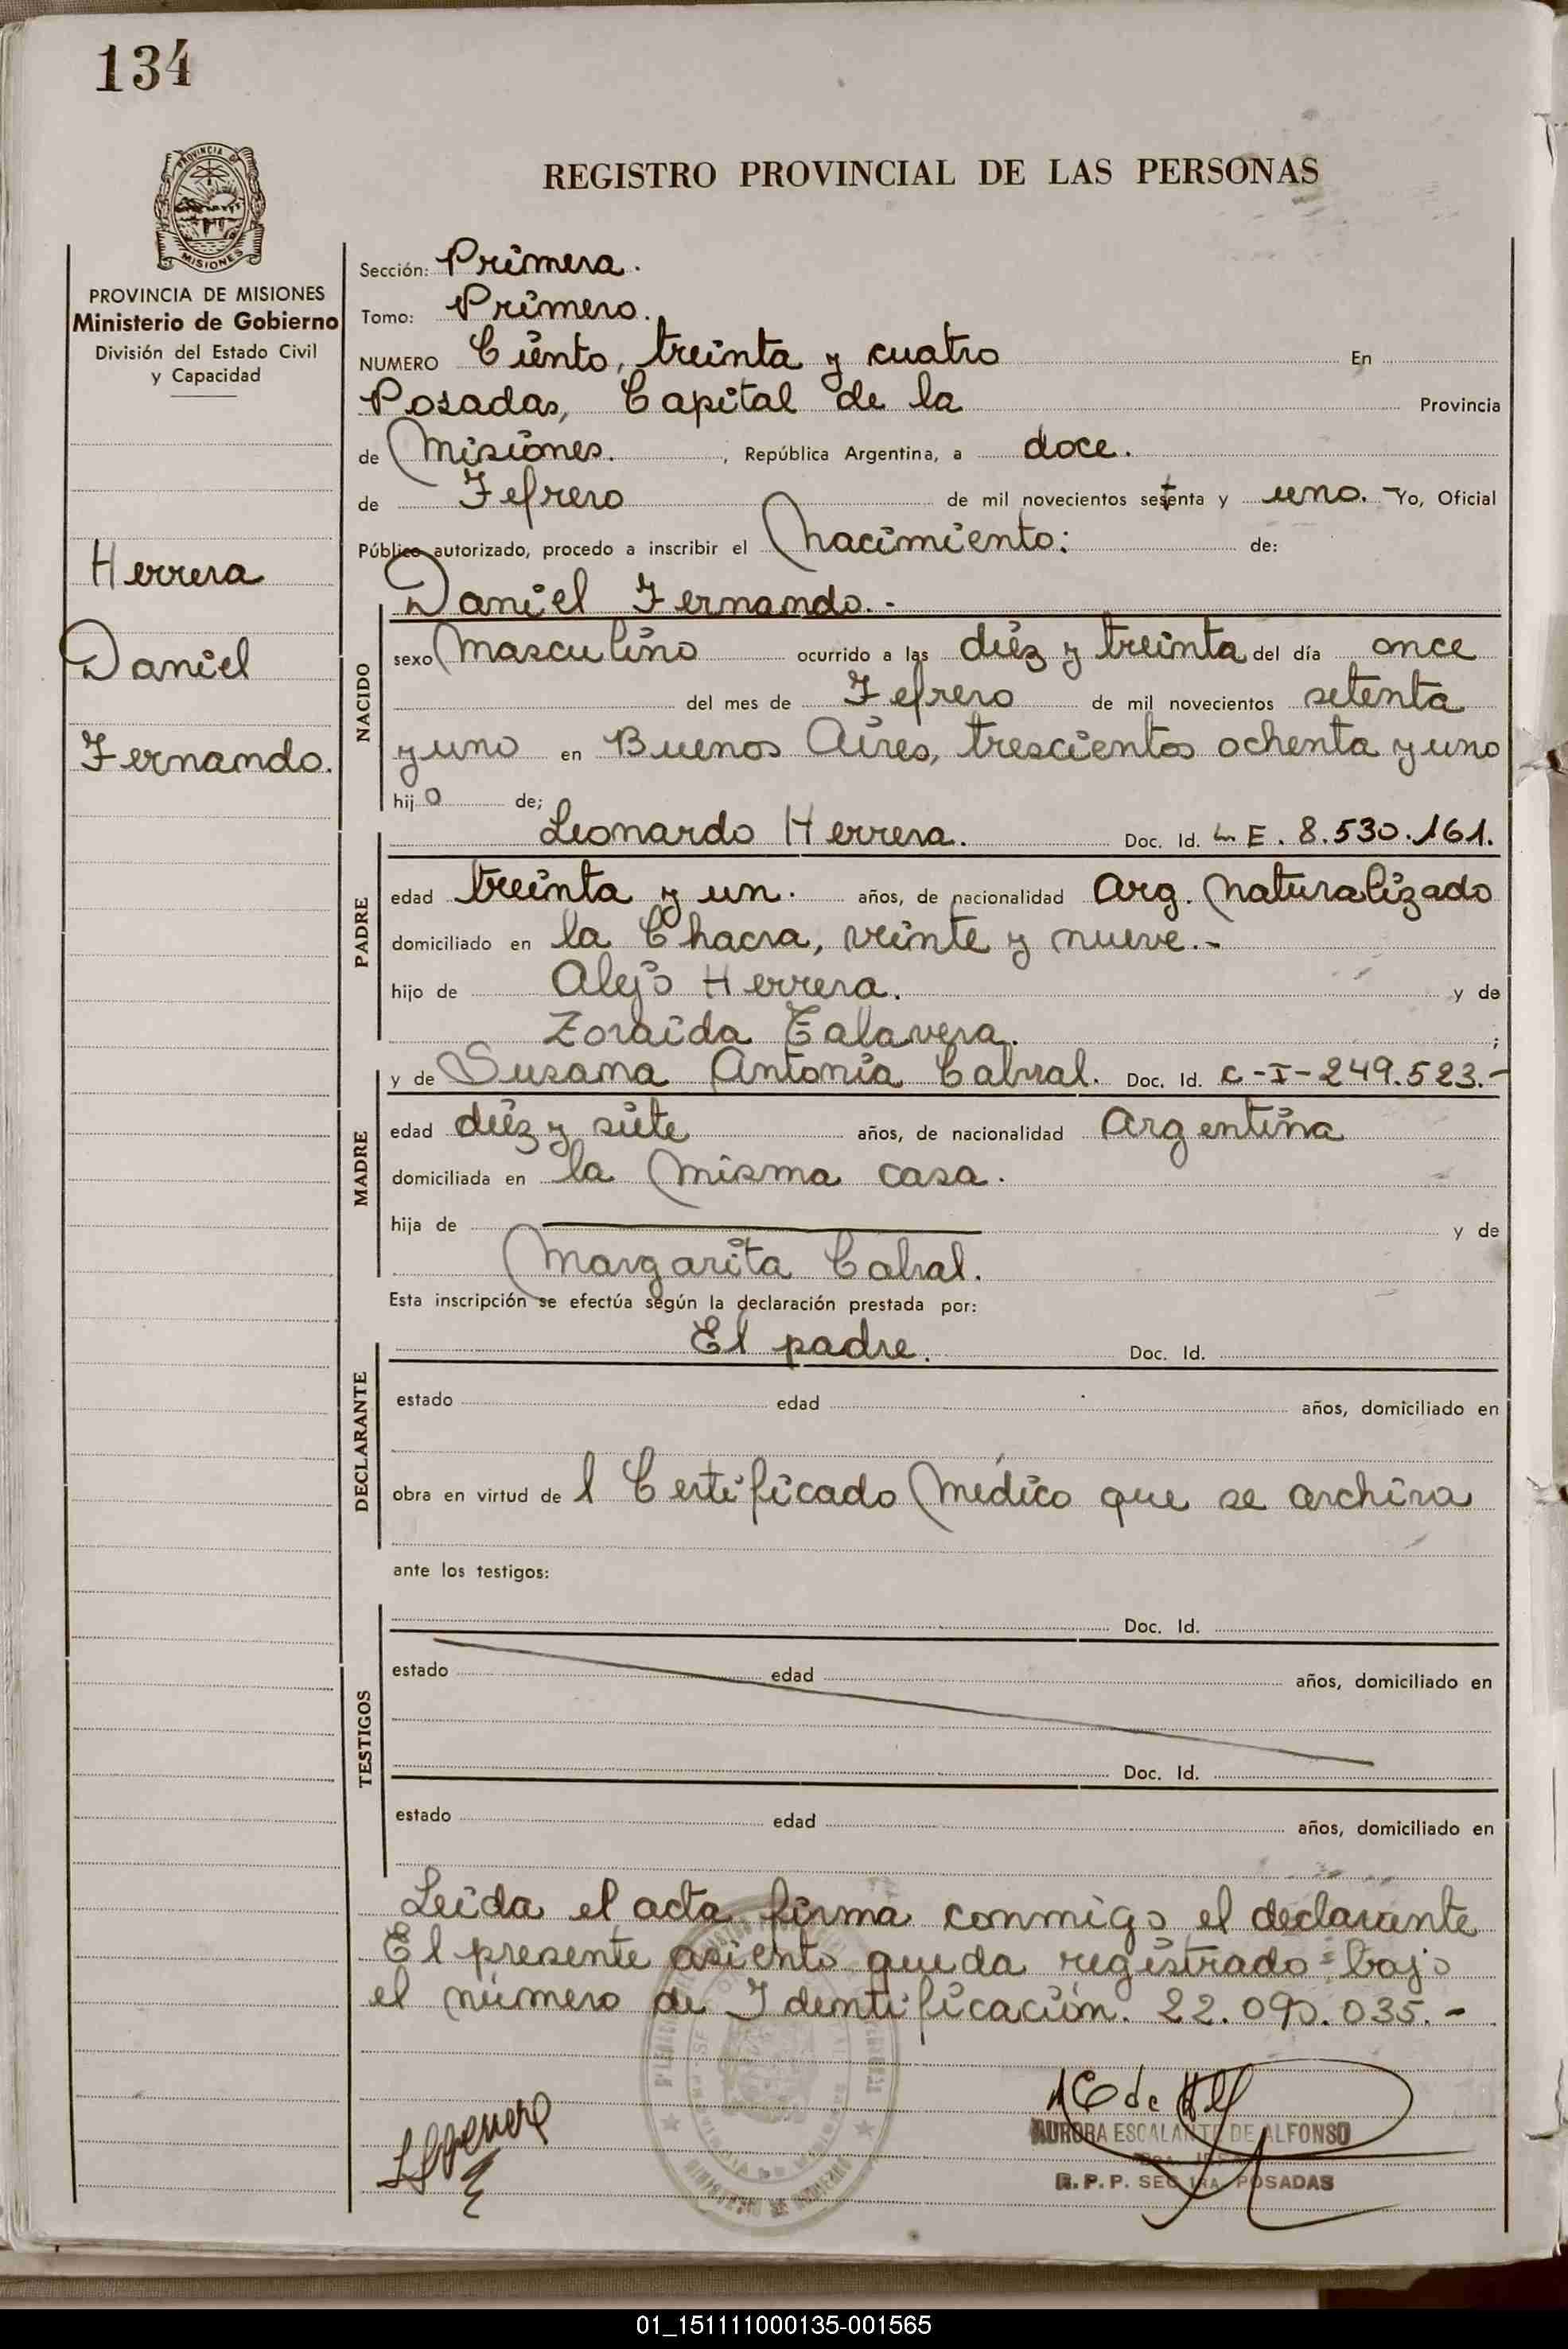 134
REGISTRO PROVINCIAL DE LAS PERSONAS
PROVINCIA DE
MISIONES
PROVINCIA DE MISIONES
Ministerio de Gobierno
División del Estado Civil
y Capacidad
Herrera
Daniel
Fernando.
Sección: Primera.
Tomo: Primero.
NUMERO Ciento, treinta y cuatro En
Posadas, Capital de la Provincia
de Misiones. , República Argentina, a doce.
de Fefrero de mil novecientos setenta y uno. Yo, Oficial
Público autorizado, procedo a inscribir el Nacimiento: de:
Daniel Fernando.-
NACIDO
sexo Masculino ocurrido a las diéz y treinta del día once
del mes de Fefrero de mil novecientos setenta
y uno en Buenos Aires, trescientos ochenta y uno
hijo de;
Leonardo Herrera. Doc. Id. L E. 8.530.161.
PADRE
edad treinta y un. años, de nacionalidad Arg. Naturalizado
domiciliado en la Chacra, veinte y nueve.-
hijo de Alejo Herrera. y de
Zoraida Talavera. ;
y de Susana Antonia Cabral. Doc. Id. C-I-249.523.-
MADRE
edad diéz y siete años, de nacionalidad Argentina
domiciliada en la Misma casa.
hija de y de
Margarita Cabral.
Esta inscripción se efectúa según la declaración prestada por:
El padre. Doc. Id.
DECLARANTE
estado edad años, domiciliado en
obra en virtud de l Certificado Médico que se archiva
ante los testigos:
Doc. Id.
TESTIGOS
estado edad años, domiciliado en
Doc. Id.
estado edad años, domiciliado en
Leida el acta firma conmigo el declarante
El presente asiento queda registrado bajo
el número de Identificación. 22.090.035.-
AURORA ESCALANTE DE ALFONSO
R.P.P. SEC 1RA. POSADAS
01_151111000135-001565